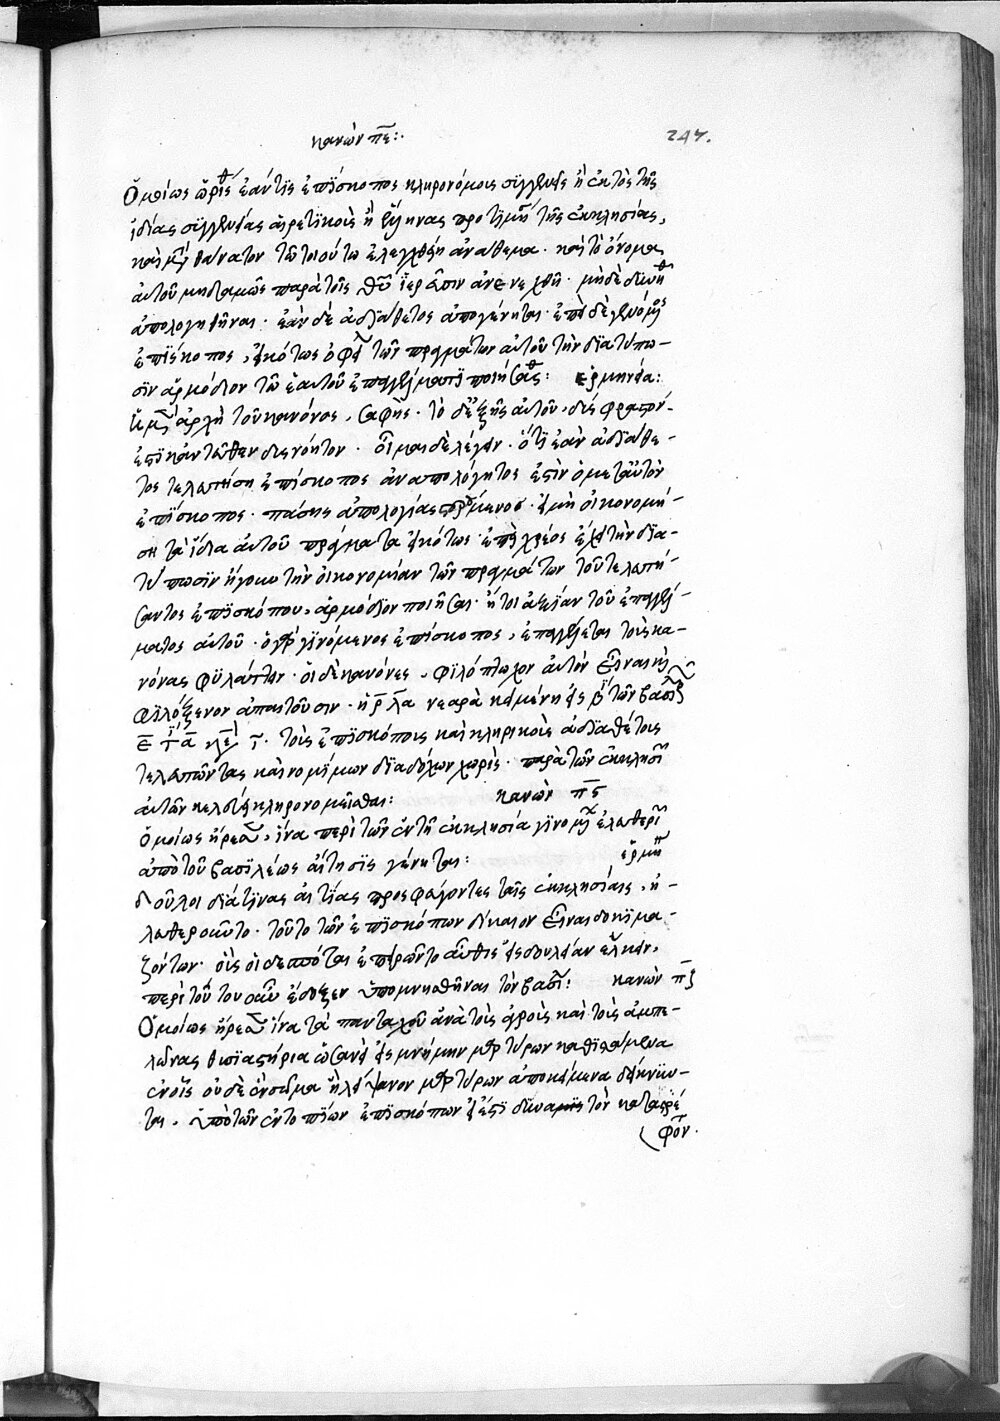 κανὼν πε:·
247.
Ὁμοίως ὡρίσθ ἐάν τις ἐπίσκοπος κληρονόμοις συγγενεῖς ἢ ἐκτὸς τῆς
ἰδίας συγγενείας αἱρετικοὺς ἢ ἕλληνας προτιμήσ τῆς ἐκκλησίας,
καὶ μετὰ θάνατον τῶ τοιούτω ἐλεγχθείη ἀνάθεμα. καὶ τὸ ὄνομα
αὐτοῦ μηδαμῶς παρὰ τοῖς θῦ ἱερεῦσιν ἀνενεχθῆ. μηδὲ δυνηθ
ἀπολογηθῆναι. ἐὰν δὲ ἀδιάθετος ἀπογένηται. ἐπειδὲ γενόμενος
ἐπίσκοπος, εἰκότως ὀφεί τῶν πραγμάτων αὐτοῦ τὴν διατύπω-
σιν ἁρμόδιον τῶ ἑαυτοῦ ἐπαγγέλματι ποιήσασθ: ἑρμηνεία:
ἡ μὲν ἀρχὴ τοῦ κανόνος, σαφής. τὸ δὲ ἑξῆς αὐτοῦ,
ἐστι κἀντεῦθεν δυσνόητον. οἶμαι δὲ λέγειν. ὅτι ἐὰν ἀδιάθε-
τος τελευτήση ἐπίσκοπος ἀναπολόγητος ἐστὶν ὁ μετ' αὐτὸν
ἐπίσκοπος. πάσης ἀπολογίας στερούμενος. εἰ μὴ οἰκονομή-
ση τὰ ἴδια αὐτοῦ πράγματα εἰκότως. ἐπεὶ χρέος ἔχει τὴν δια-
τύπωσιν ἤγουν τὴν οἰκονομίαν τῶν πραγμάτων τοῦ τελευτή-
σαντος ἐπισκόπου, ἁρμόδιον ποιῆσαι. ἤτοι ἀξίαν τοῦ ἐπαγγέλ-
ματος αὐτοῦ. ὁ γὰρ γινόμενος ἐπίσκοπος, ἐπαγγέλεται τοὺς κα-
νόνας φυλάττειν. οἱ δὲ κανόνες, φιλόπτωχον αὐτὸν εἶναι καὶ
φιλόξενον ἀπαιτοῦσιν. ἡ ρ̅λ̅α̅ νεαρὰ κειμένη εἰς β τῶν βασιλ
ε̅ τ̅ι̅ α̅ κεφ ι̅. τοὺς ἐπισκόπους καὶ κληρικοὺς ἀδιαθέτους
τελευτῶντας καὶ νομίμων διαδόχων χωρὶς. παρὰ τῶν ἐκκλησι
αὐτῶν κελεύει κληρονομεῖσθαι: κανὼν πς
Ὁμοίως ἤρεσεν, ἵνα περὶ τῶν ἐν τῇ ἐκκλησία γινομεν ἐλευθερι
ἀπὸ τοῦ βασιλέως αἴτησις γένηται: ἑρμη
δοῦλοι διά τινας αἰτίας προσφεύγοντες ταῖς ἐκκλησίαις, ἠ-
λευθεροῦντο. τοῦτο τῶν ἐπισκόπων δίκαιον εἶναι δοκιμα-
ζόντων. οὓς οἱ δεσπόται ἐπειρῶντο αὖθις εἰς δουλείαν ἕλκειν,
περὶ τούτου οὖν ἔδοξεν ὑπομνησθῆναι τὸν βασιλ: κανὼν πζ
Ὁμοίως ἤρεσεν ἵνα τὰ πανταχοῦ ἀνὰ τοὺς ἀγροὺς καὶ τοὺς ἀμπε-
λῶνας θυσιαστήρια ὡσανεὶ εἰς μνήμην μαρτύρων καθιστάμενα
ἐν οἷς οὐδὲ ἓν σῶμα ἢ λείψανον μαρτύρων ἀποκείμενα δείκνυ-
ται. ὑπὸ τῶν ἐντοπίων ἐπισκόπων εἰ ἔστι δυναμις τὸν καταστρέ
φον.